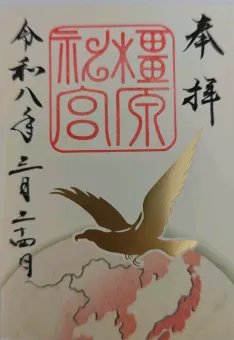 奉拝
橿原
神宮
令和八年三月二十四日